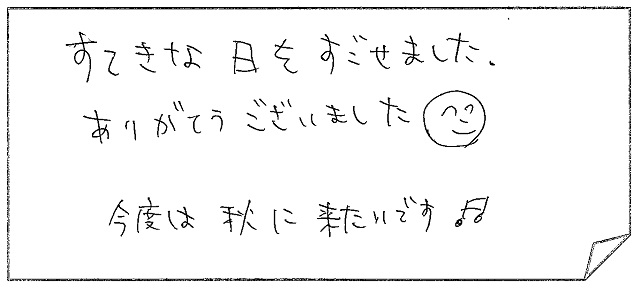 すてきな日をすごせました.
ありがとうございました
今度は秋に来たいです♫